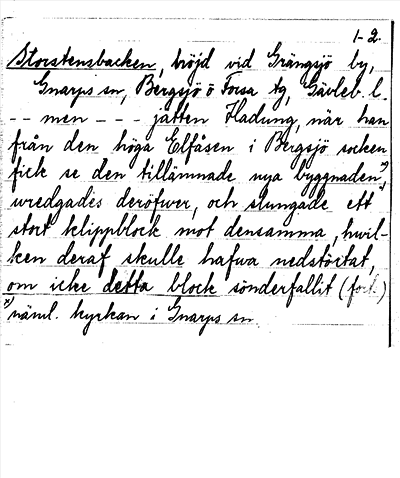 1-2.
Storstensbacken, höjd vid Grängsjö by,
Gnarps sn, Bergsjö o Forsa tg, Gävleb. l.
-- men --- jätten Hadung, när han
från den höga Elfåsen i Bergsjö socken
fick se den tillämnade nya byggnaden, x)
wredgades deröfwer, och slungade ett
stort klippblock mot densamma, hwil-
ken deraf skulle hafwa nedstörtat,
om icke detta block sönderfallit (forts.)
x) näml. kyrkan i Gnarps sn.